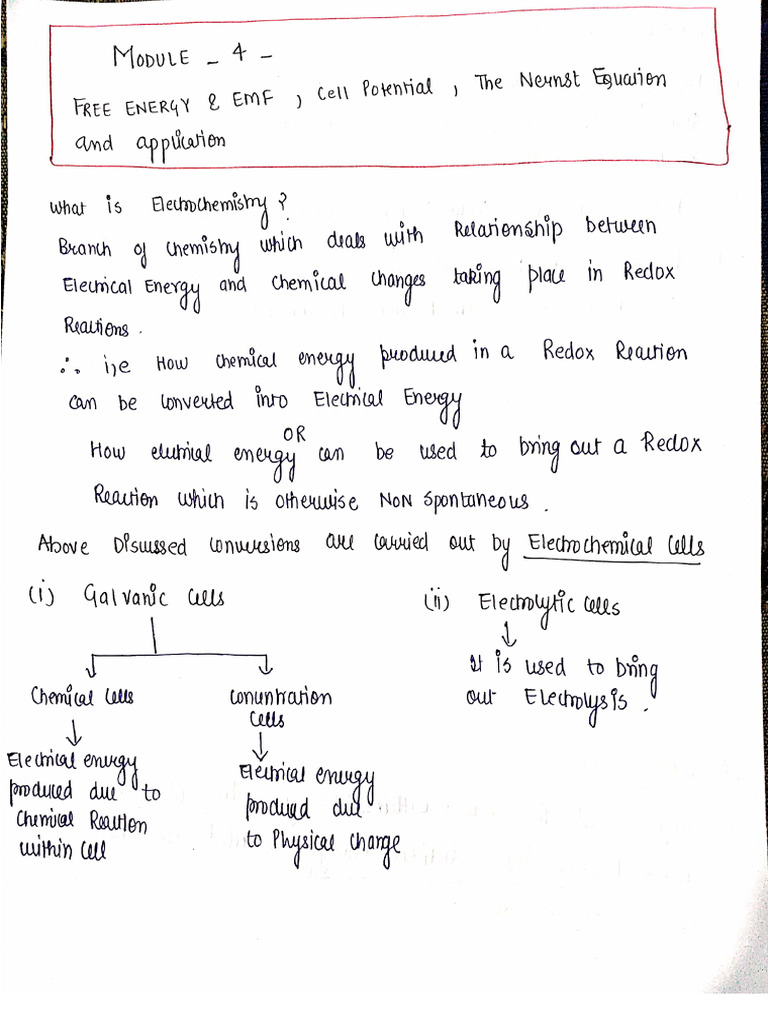 MODULE - 4 -
FREE ENERGY & EMF , Cell Potential , The Nernst Equation
and application
What is Electrochemistry?
Branch of chemistry which deals with Relationship between
Electrical Energy and chemical changes taking place in Redox
Reactions .
∴ i,e How chemical energy produced in a Redox Reaction
can be converted into Electrical Energy
OR
How electrical energy can be used to bring out a Redox
Reaction which is otherwise NON spontaneous .
Above Discussed conversions are carried out by Electrochemical Cells
(i) Galvanic cells
(ii) Electrolytic cells
It is used to bring
out Electrolysis .
Chemical cells
Concentration
cells
Electrical energy
produced due to
Chemical Reaction
within cell
Electrical energy
produced due
to Physical change